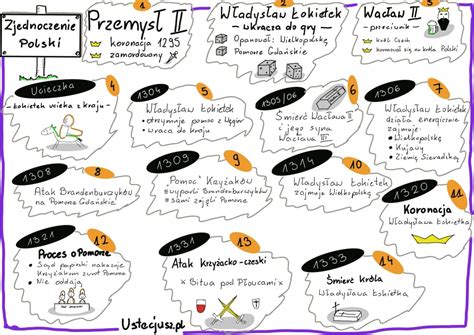 Zjednoczenie
Polski
1
Przemysł II
koronacja 1295
zamordowany
2
Władysław Łokietek
- wkracza do gry -
Opanował: Wielkopolskę
Pomorze Gdańskie
3
Wacław II
- przeciwnik -
król Czech
koronował się na króla Polski
4
Ucieczka
- Łokietek ucieka z kraju -
5
1304
Władysław Łokietek
otrzymuje pomoc z Węgier
wraca do kraju
6
1305/06
Śmierć Wacława II
i jego syna
Wacława III
7
1306
Władysław Łokietek
działa energicznie
zajmuje:
Wielkopolskę
Kujawy
Ziemię Sieradzką
8
1308
Atak Brandenburczyków
na Pomorze Gdańskie
9
1309
"Pomoc" Krzyżaków
wyparli Brandenburczyków
sami zajęli Pomorze
10
1314
Władysław Łokietek
zajmuje Wielkopolskę
11
1320
Koronacja
Władysława Łokietka
12
1321
Proces o Pomorze
Sąd papieski nakazuje
Krzyżakom zwrot Pomorza
Nie oddają
13
1331
Atak Krzyżacko-czeski
x Bitwa pod Płowcami x
14
1333
Śmierć króla
Władysława Łokietka
Ustecjusz.pl